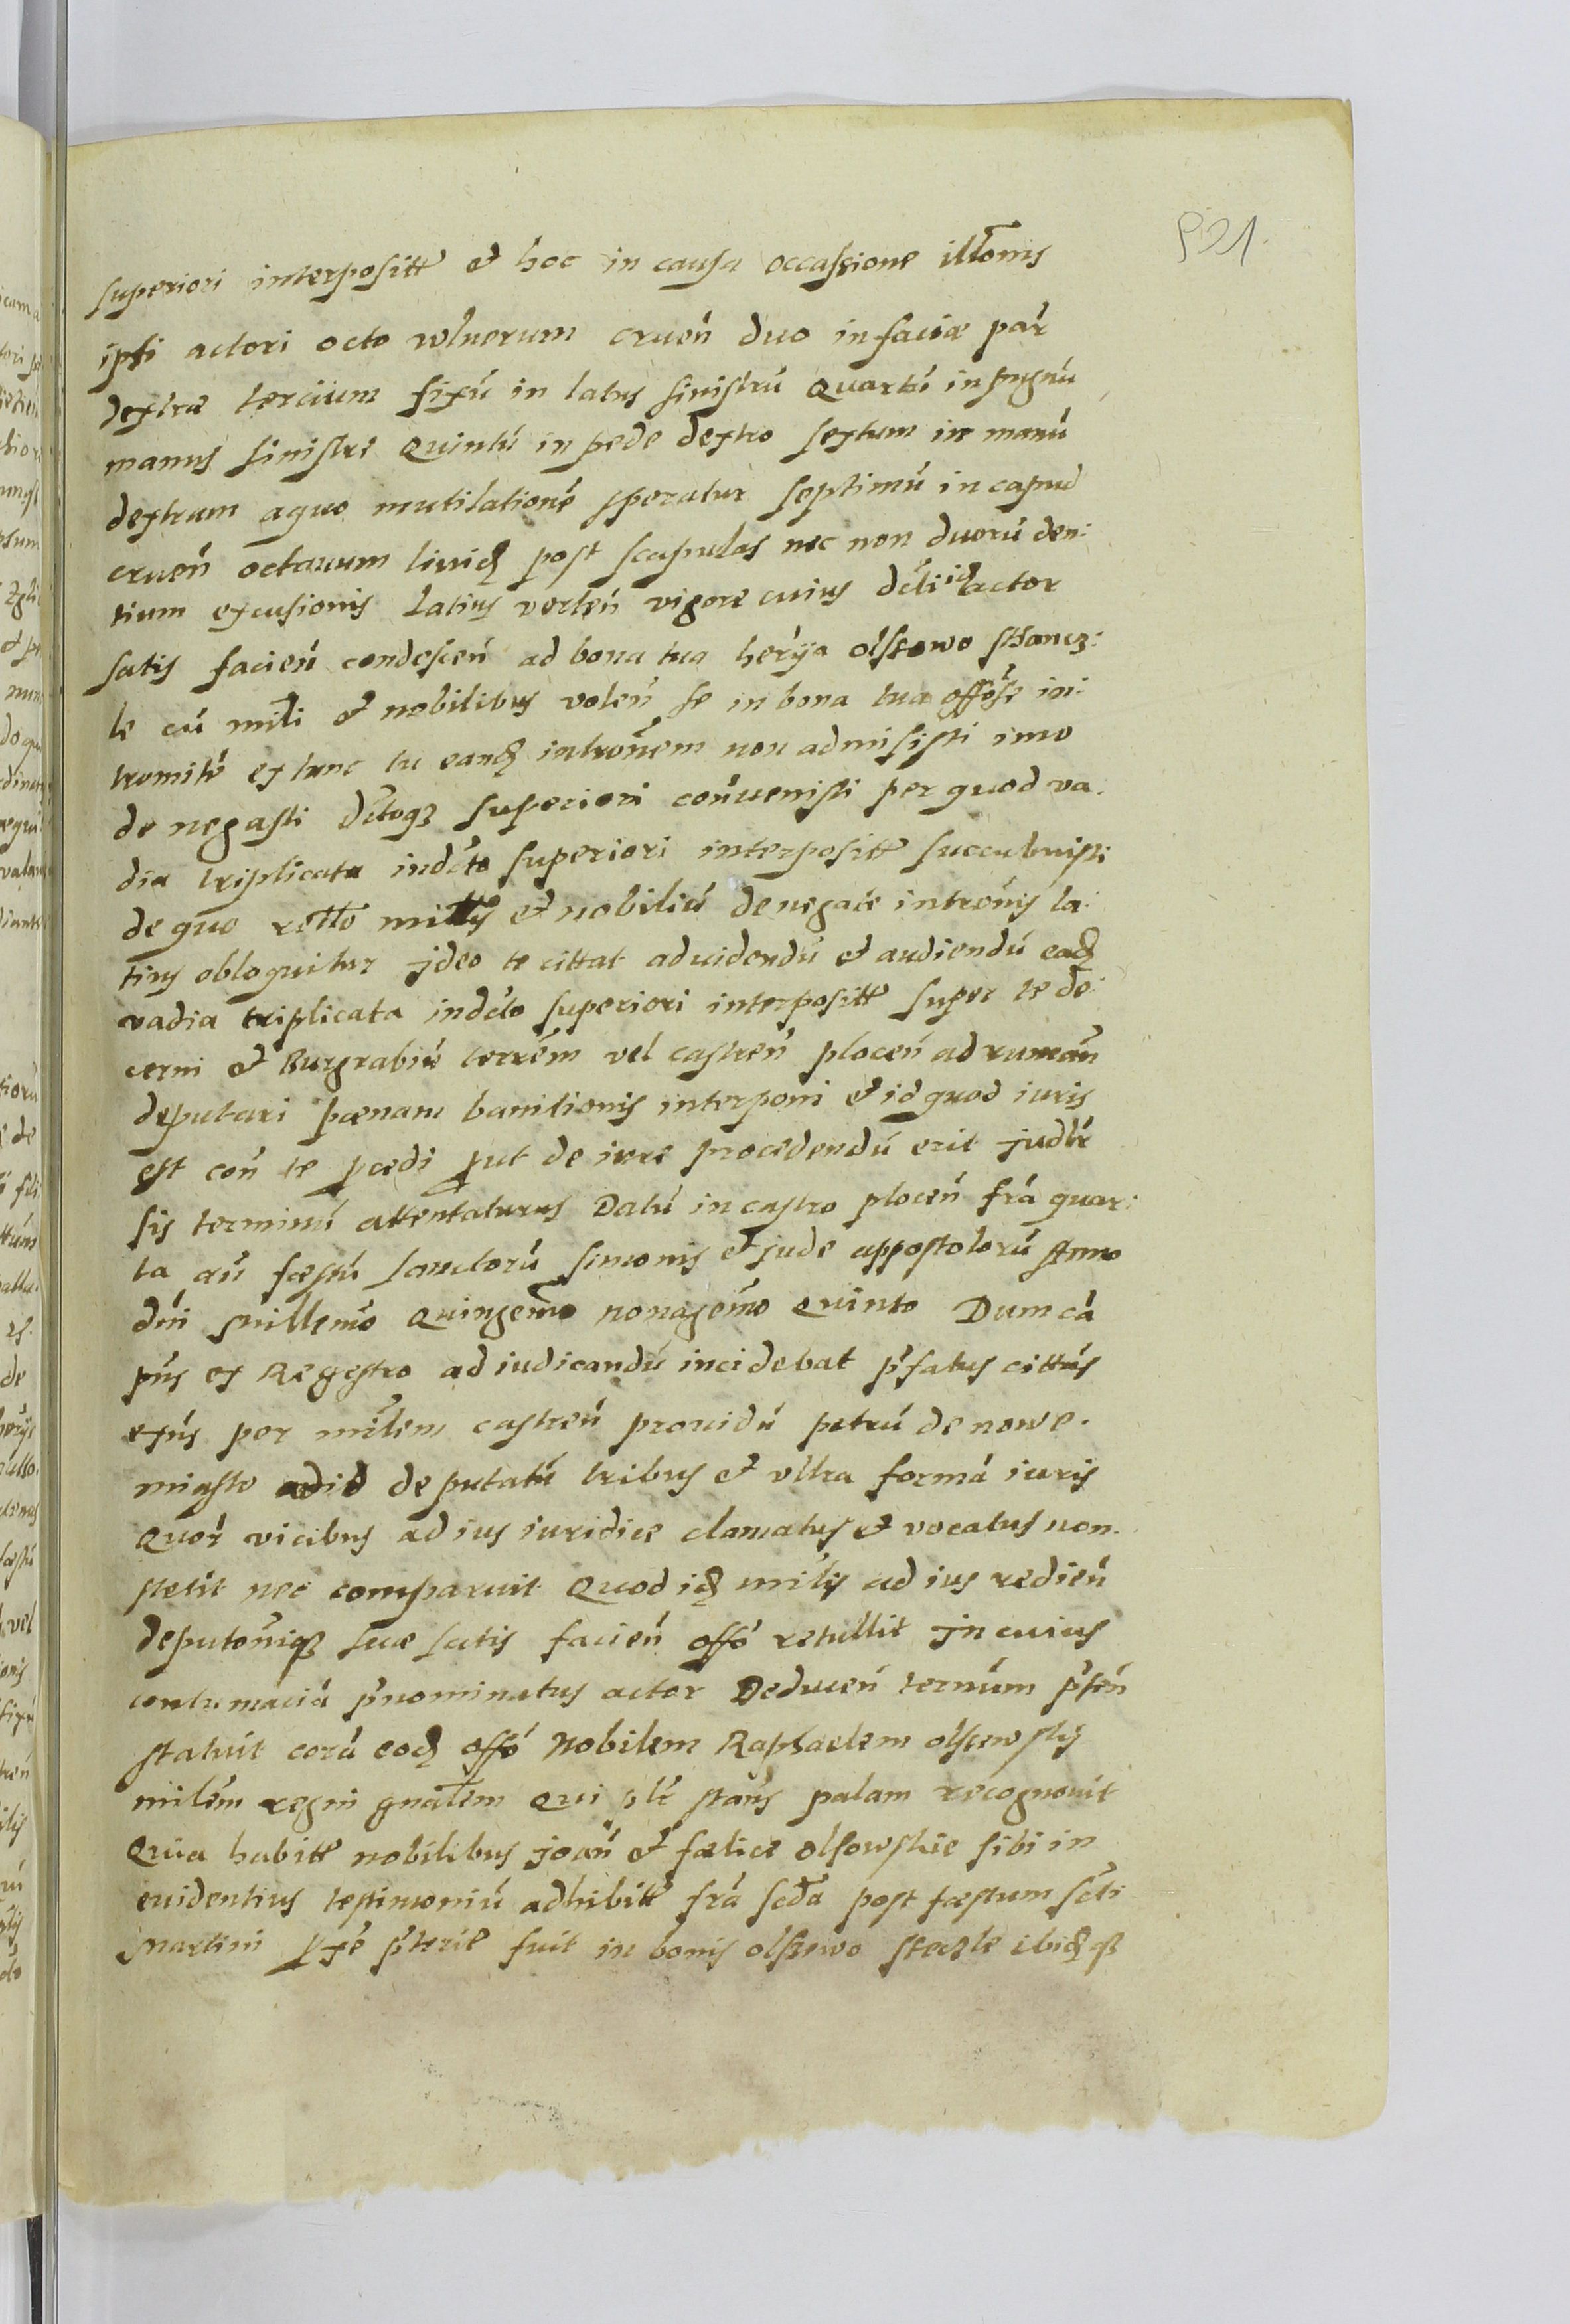 521.
superiori interpositt et hoc in causa occassione illonis
ipsi actori octo vulnerum cruen̄ duo in faciæ par
dextræ tercium fixū in latus sinistrū Quartū in pugnū
manus sinistre Quintū in pede dextro sextum in manū
dextram aquo mutilationē speratur septimū in capud
cruen̄ octavum livid post scapulas nec non duorū den:
tium excusionis Latius verten̄ vigore cuius decti id actor
satis facien̄ condescen̄ ad bona tua heryą olszewo
le cū mili et nobilibus volen̄ se in bona tua in:
tromitē ex tunc tu eand introm̄em non admisisti imo
de negasti dctoq3 superiori conuenisti per quod va.
dia triplicata indcto superiori interpositt succubuisti
de quo militis et nobiliū denegate introm̄is la:
tius obloquitur jdeo te cittat ad uidendū et audiendū ead
vadia triplicata indcto superiori interpositt super te de:
cerni et Burgrabiū terrēm vel castren̄ plocen̄ ad ruman̄
deputari pænam banitionis interponi et id quod iuris
est con̄ te pcedi put de iure procedendū erit judlr
sis terminū attentaturus Datū in castro plocen̄ frā quar:
ta an̄ fæstū sanctorū simonis et jude appostolorū Anno
dni millemo Quingemo nonagemo Quinto Dum cā
pns ex Regestro ad iudicandū incidebat pfatus cittūs
exns per milem castren̄ prouidū petrū de nowe.
miasto adid deputatū tribus et vltra formā iuris
Quor̄ vicibus ad ius iuridice clamatus et vocatus non.
stetit nec comparuit Quod id milis ad ius redien̄
deputoniq3 suæ satis facien̄ offo retullit jn cuius
contumaciā pnominatus actor Deducen̄ ternūm psen̄
statuit corā eod offo Nobilem Raphaelem olszewskij
milem regni gnalem Qui plr stans palam recognouit
Quia habitt nobilibus joan̄ et fælice olsowskie sibi in
euidentius testimoniū adhibitt frā scda post fæstum scti
Martini pxe pterit fuit in bonis olszewo steczle ibidq3